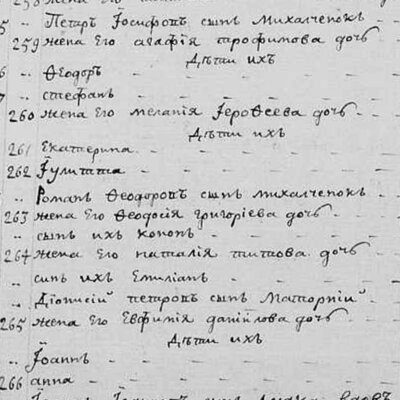 258 жена Его
5 .. Петаръ Іосифовъ сынъ Михалченокъ
259 жена Его агафія трофимова дочь
Дѣти ихъ
6 .. Ѳеодоръ
7 .. стефанъ
260 жена Его меланія Іероѳеева дочь
Дѣти ихъ
261 Екатерина
262 Іулитта
.. Романъ Ѳеодоровъ сынъ михалченокъ
263 жена Его Ѳеодосія григоріева дочь
.. сынъ ихъ кононъ
264 жена Его наталія титова дочь
.. синъ ихъ Емиліанъ
.. Діонисій петровъ сынъ Маторній
265 жена Его Евфимія даніилова дочь
Дѣти ихъ
.. Іоаннъ
266 анна